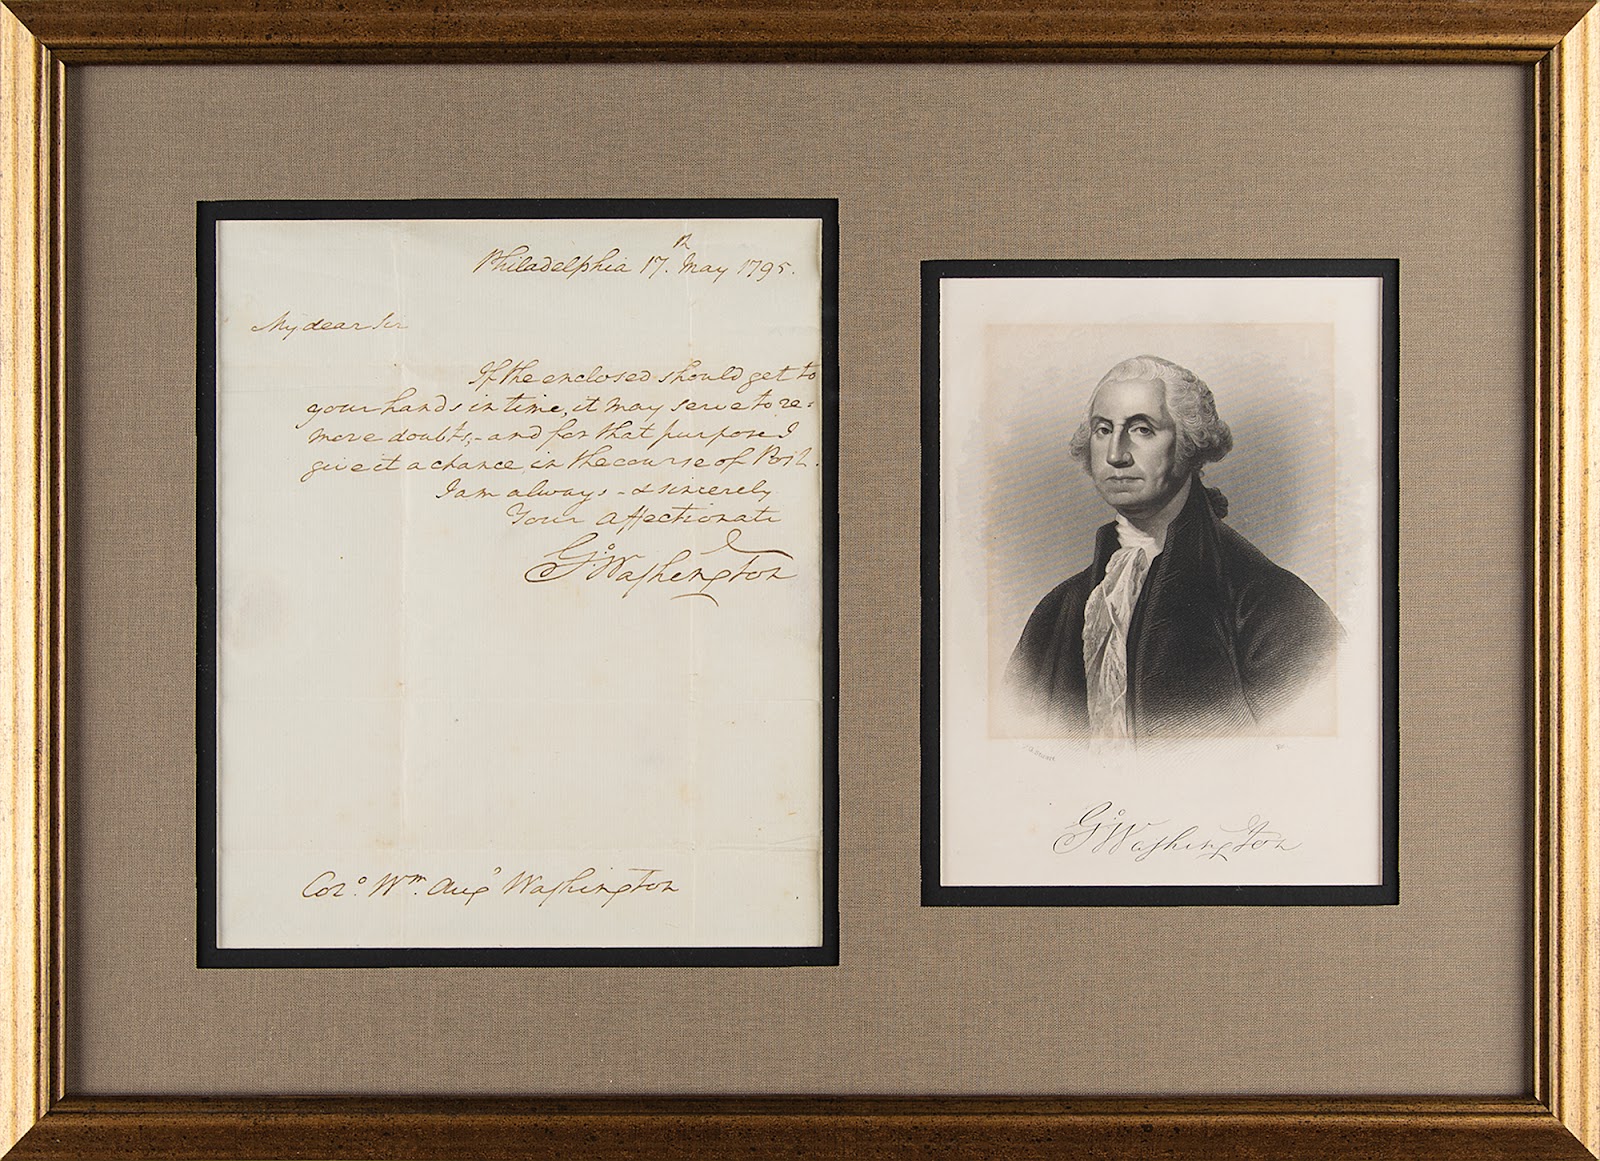 Philadelphia 17th. May 1795.
My dear Sir
If the enclosed should get to
your hands in time, it may serve to re-
move doubts,- and for that purpose I
give it a chance in the course of Post.
I am always - & sincerely
Your Affectionate
Go: Washington
Colo. Wm. Augs Washington
Go Washington